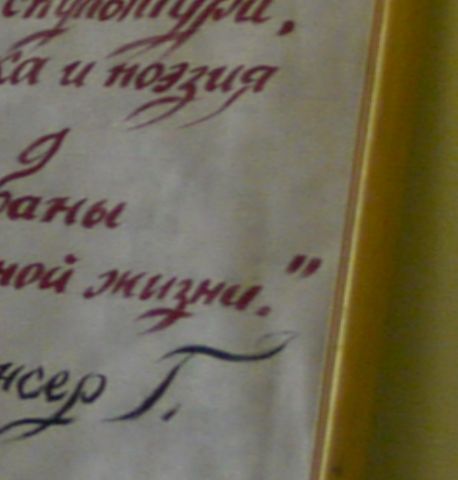 скульптура,
ка и поэзия
я
раны
ной жизни."
нсер Г.